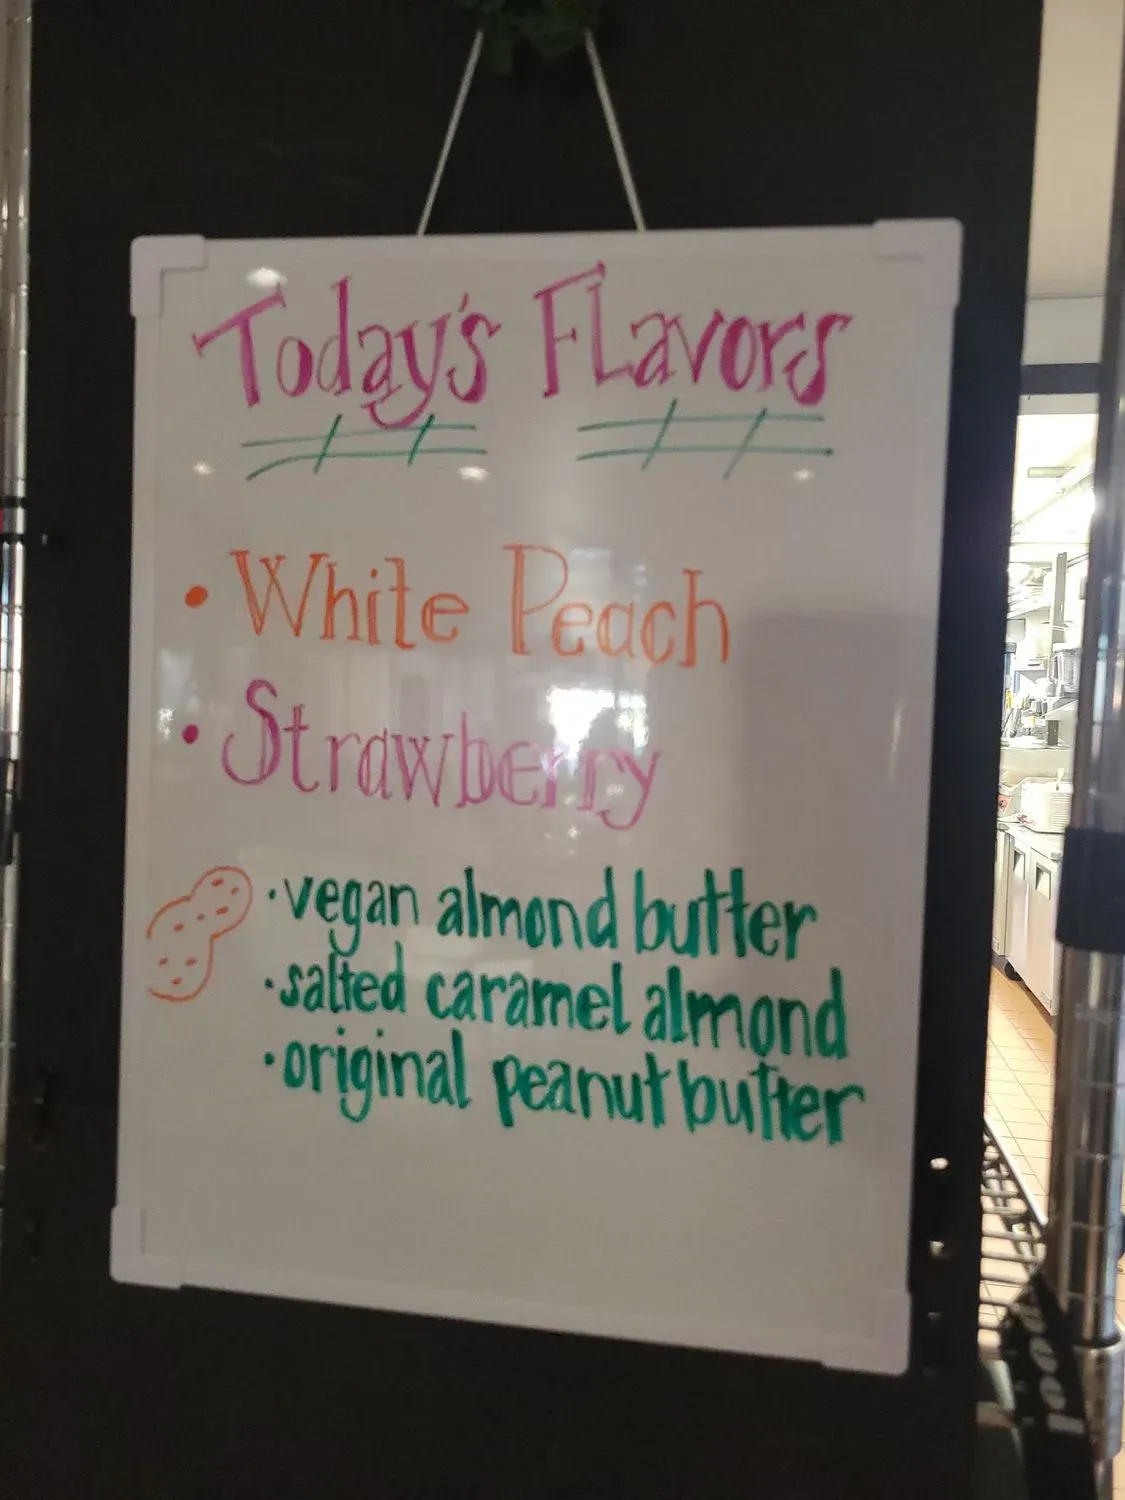 Today's Flavors
• White Peach
• Strawberry
• vegan almond butter
• salted caramel almond
• original peanut butter